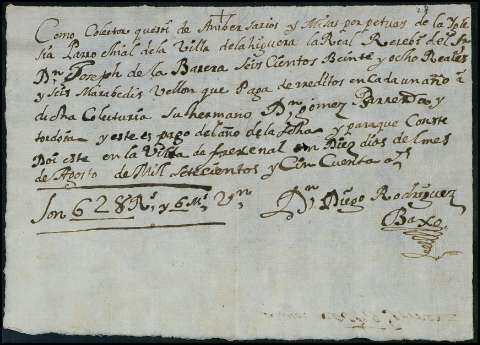 Como Colector que soi de Aniber sarios y Misas perpetuas de la Igle
sia Parro chial dela Villa dela higuera la Real Resebi del Sr
Dn Joseph de la Barera Seis Cientos Beinte y ocho Reales
y Seis Marabedis Vellon que Paga de reditos en Cada un año a
dicha Colecturia Su hermano Dn Gomez Barrera y
tordoia y este es pago del año de la fecha y para que Conste
Doi este en la Villa de frexenal en Diez dias del mes
de Agosto de Mil Setecientos y Cin Cuenta as
Son 628 Rs y 6 Ms Vn
Dn Diego Rodriguez
Baxo